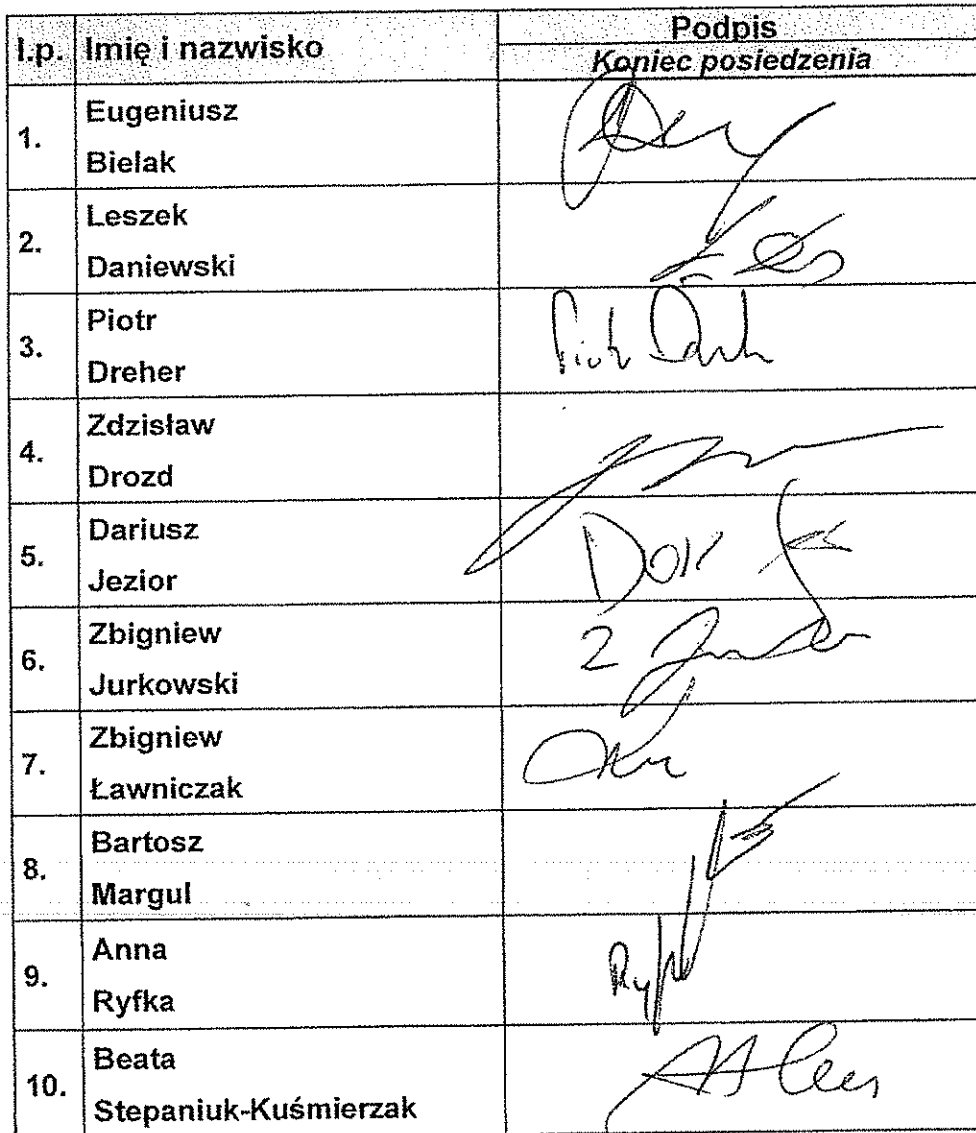 l.p. Imię i nazwisko Podpis
Koniec posiedzenia
1. Eugeniusz
Bielak
2. Leszek
Daniewski
3. Piotr
Dreher
Piotr
4. Zdzisław
Drozd
5. Dariusz
Jezior
6. Zbigniew
Jurkowski
7. Zbigniew
Ławniczak
8. Bartosz
Margul
9. Anna
Ryfka
10. Beata
Stepaniuk-Kuśmierzak